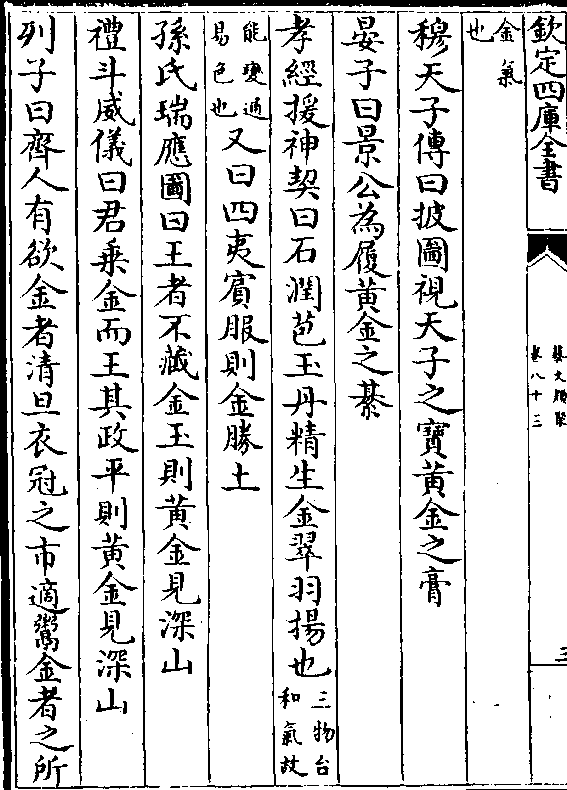 欽定四庫全書
藝文類聚
卷八十三
三
金氣
也
穆天子傳曰披圖視天子之寶黃金之膏
晏子曰景公為履黃金之綦
孝經援神契曰石潤苞玉丹精生金翠羽揚也三物台
和氣故
能變通
易色也又曰四夷賓服則金勝土
孫氏瑞應圖曰王者不藏金玉則黃金見深山
禮斗威儀曰君乗金而王其政平則黃金見深山
列子曰齊人有欲金者清旦衣冠之市適鬻金者之所